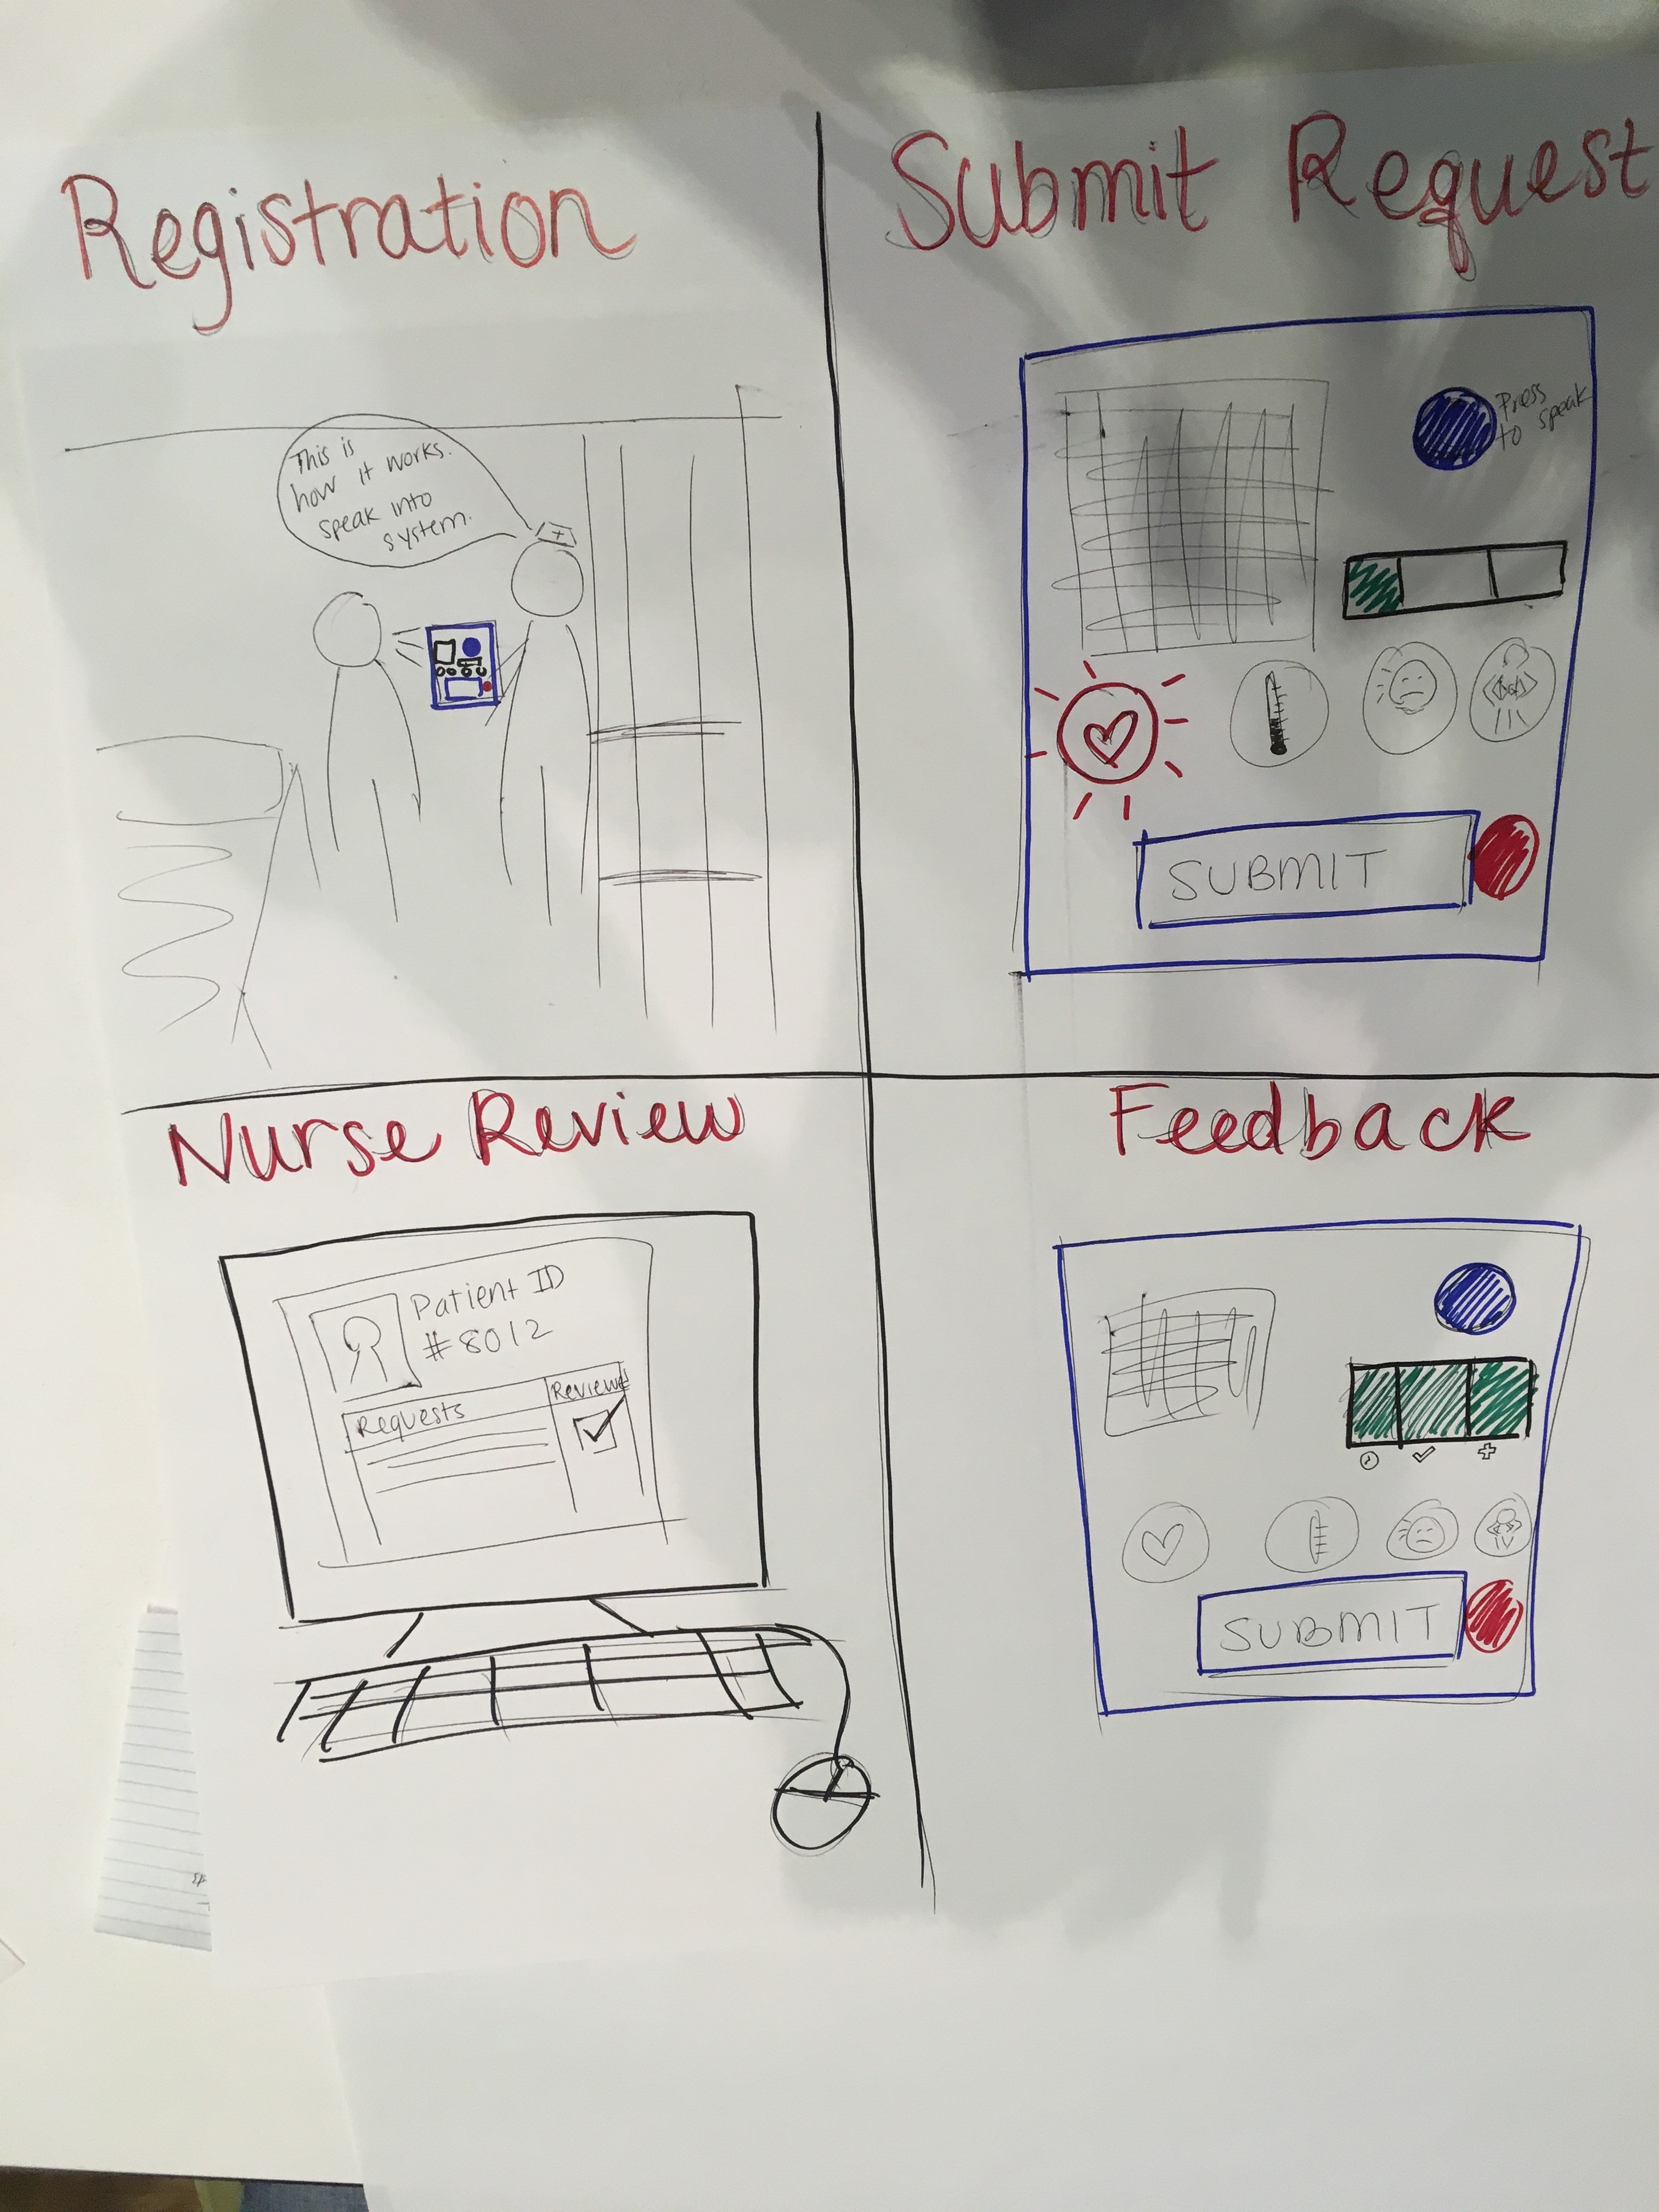 Registration
This is
how it works.
speak into
system.
Submit Request
Press
to speak
SUBMIT
Nurse Review
Patient ID
#8012
Requests
Review
Feedback
SUBMIT